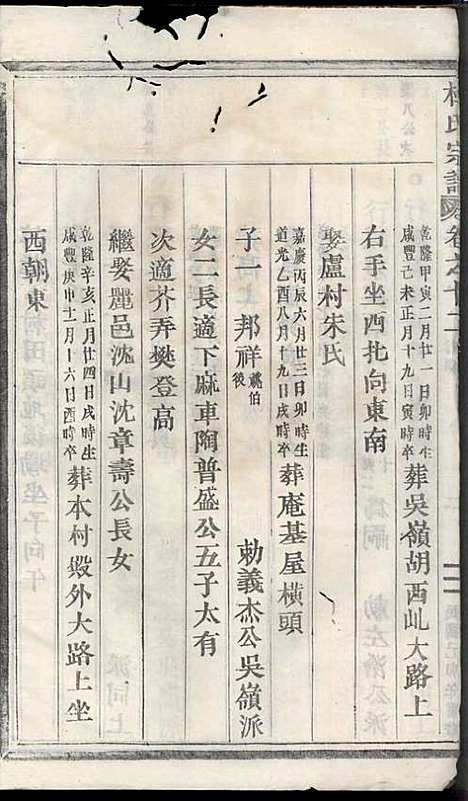 氏宗譜 卷之十二
乾隆甲寅二月廿一日卯時生
咸豐己未正月十九日寅時卒 葬吳嶺胡西屾大路上
右手坐西北向東南
娶盧村朱氏
嘉慶丙辰六月廿三日卯時生
道光乙酉八月十九日戌時卒 葬庵基屋橫頭
子一 邦祥 祧伯後 勅義杰公吳嶺派
女二長適下麻車陶普盛公五子太有
次適芥弄樊登高
繼娶麗邑沈山沈章壽公長女
乾隆辛亥正月廿四日戌時生
咸豐庚申十一月十六日酉時卒 葬本村毀外大路上坐
西朝東